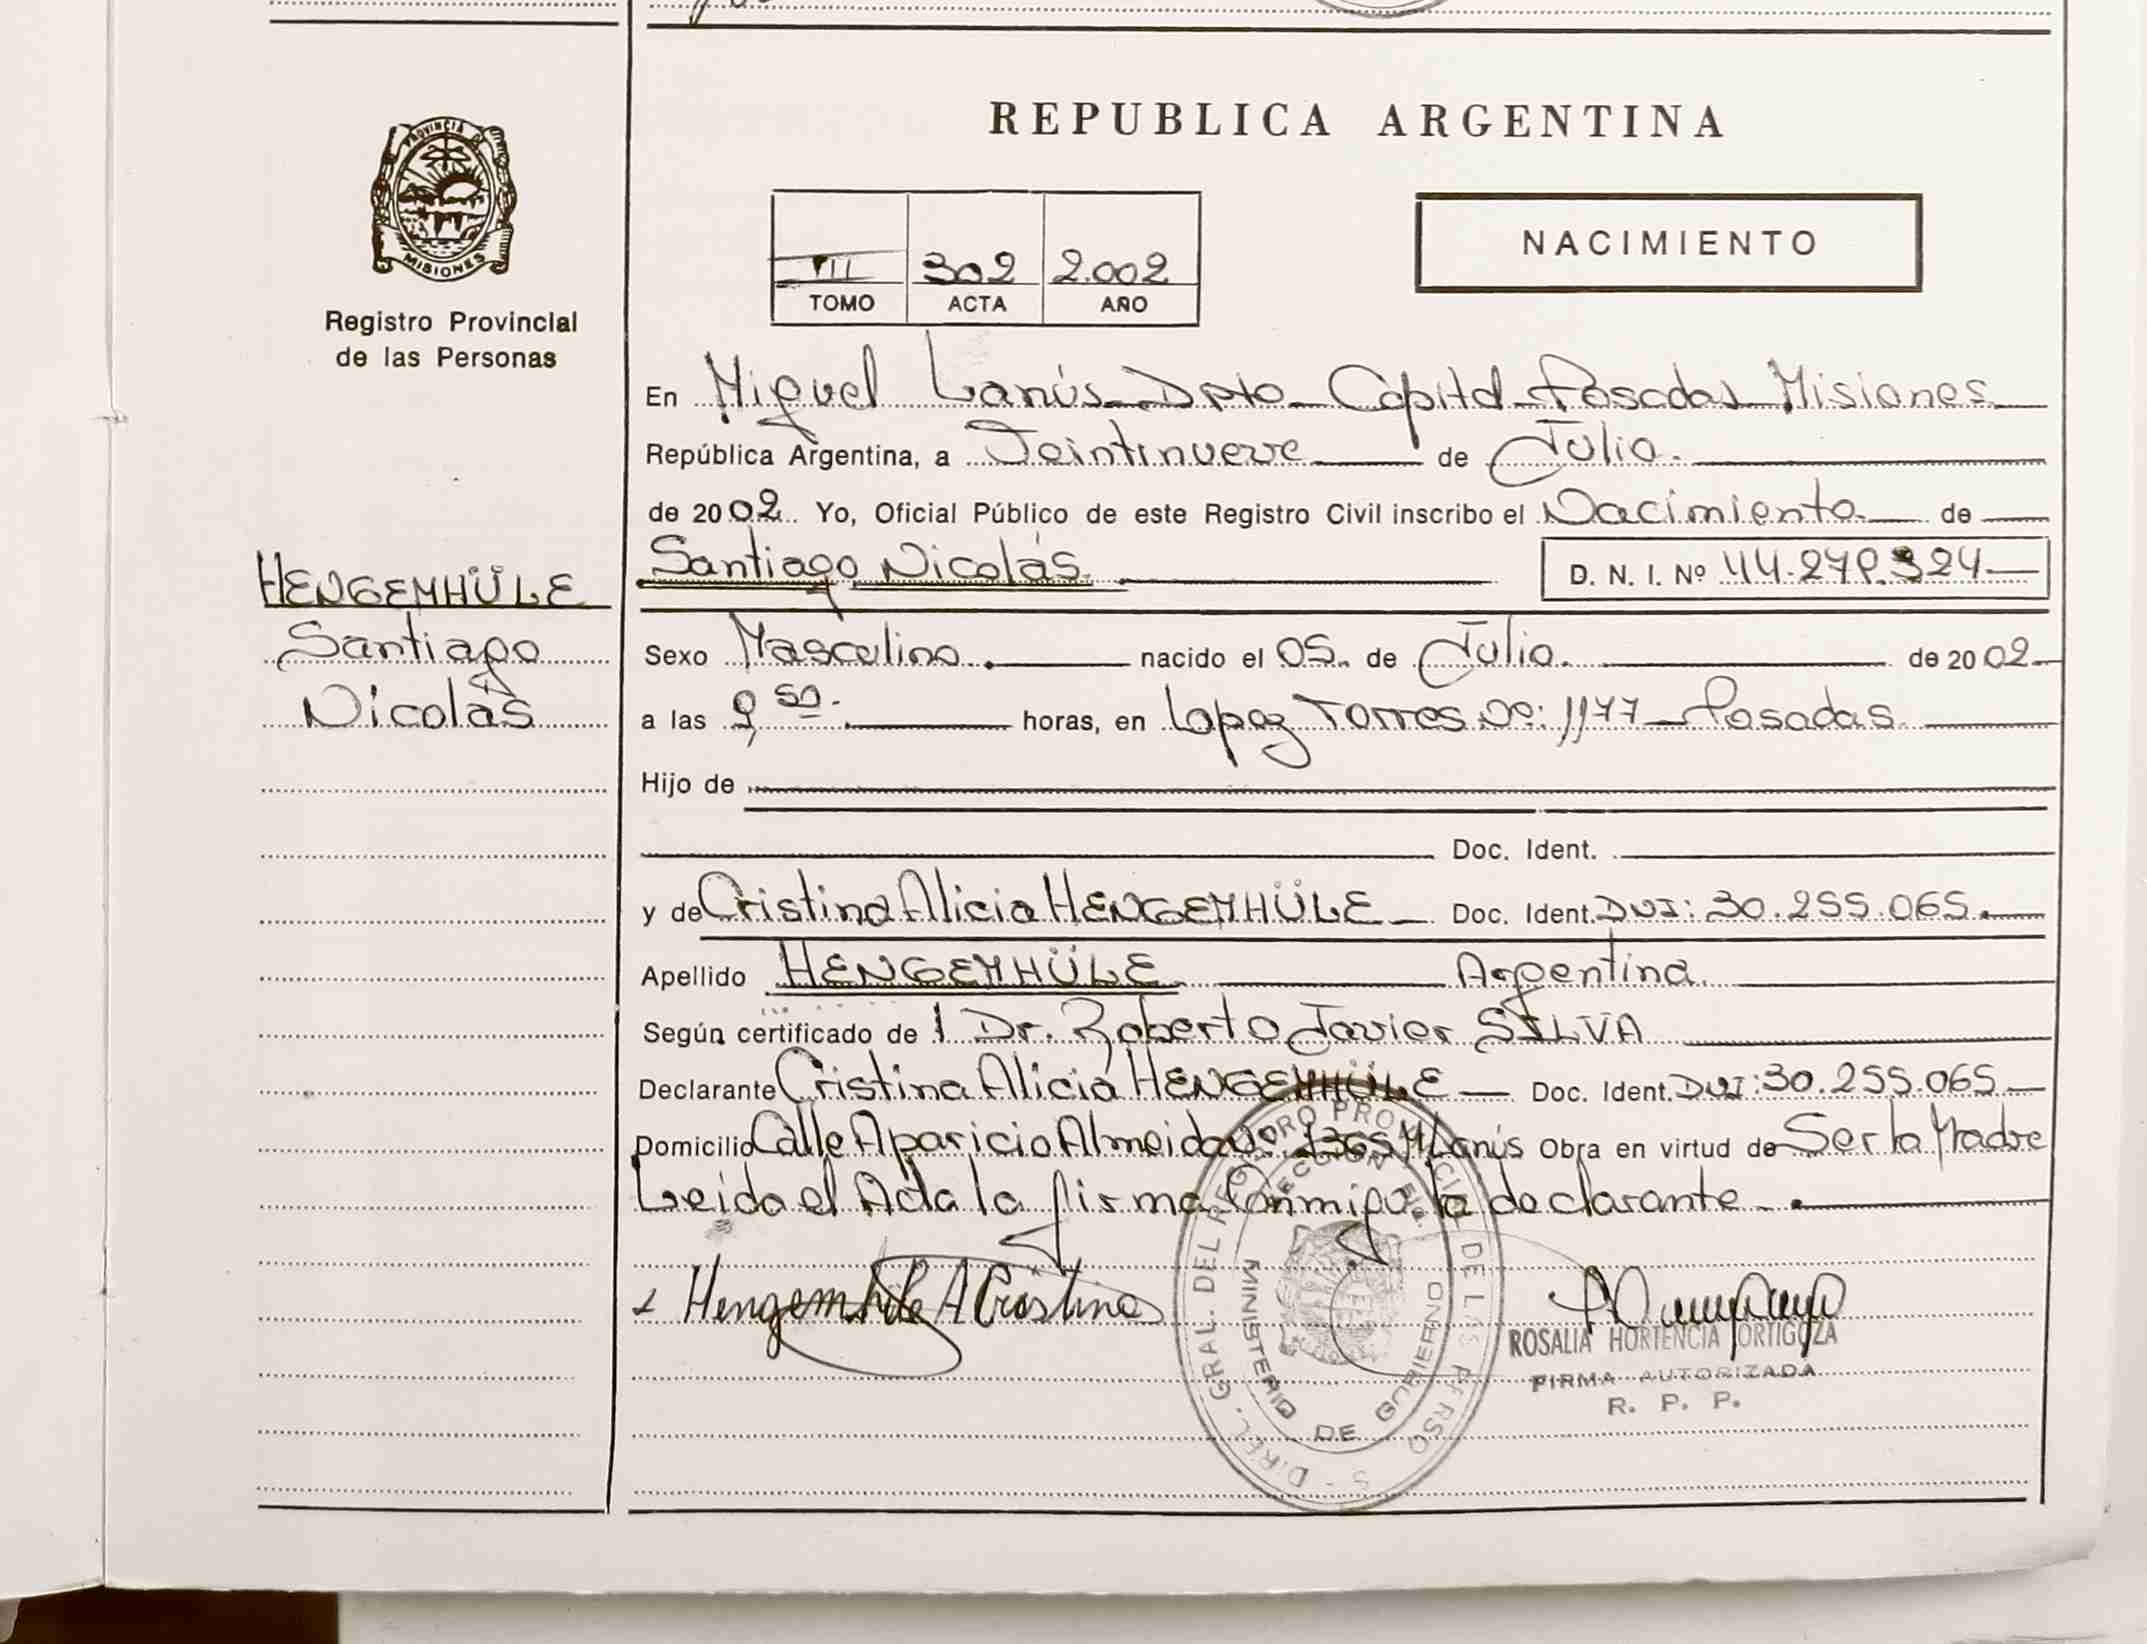 PROVINCIA DE
MISIONES
Registro Provincial
de las Personas
HENGEMHÜLE
Santiago
Nicolás
REPUBLICA ARGENTINA
NACIMIENTO
302 2.002
TOMO ACTA AÑO
En Miguel Lanús Dpto Capital Posadas Misiones
República Argentina, a Veintinueve de Julio.
de 2002. Yo, Oficial Público de este Registro Civil inscribo el Nacimiento de
Santiago Nicolás. D. N. I. Nº
Sexo Masculino. nacido el 05. de Julio. de 2002
a las 9,50. horas, en Lopez Torres Nº: 1177 Posadas
Hijo de
Doc. Ident.
y de Cristina Alicia HENGEMHÜLE Doc. Ident. DNI: 30.255.065.
Apellido HENGEMHÜLE Argentina.
Según certificado de l Dr. Roberto Javier SILVA
Declarante Cristina Alicia HENGEMHÜLE Doc. Ident. DNI: 30.255.065
Domicilio Calle Aparicio Almeida Nº: 1365 M. Lanús Obra en virtud de Ser la Madre
Leida el Acta la firma Conmigo la declarante.
Hengemhüle A Cristina
DIREC. GRAL. DEL REGISTRO PROVINCIAL DE LAS PERSONAS
MINISTERIO DE GOBIERNO
ROSALIA HORTENCIA ORTIGOZA
FIRMA AUTORIZADA
R. P. P.